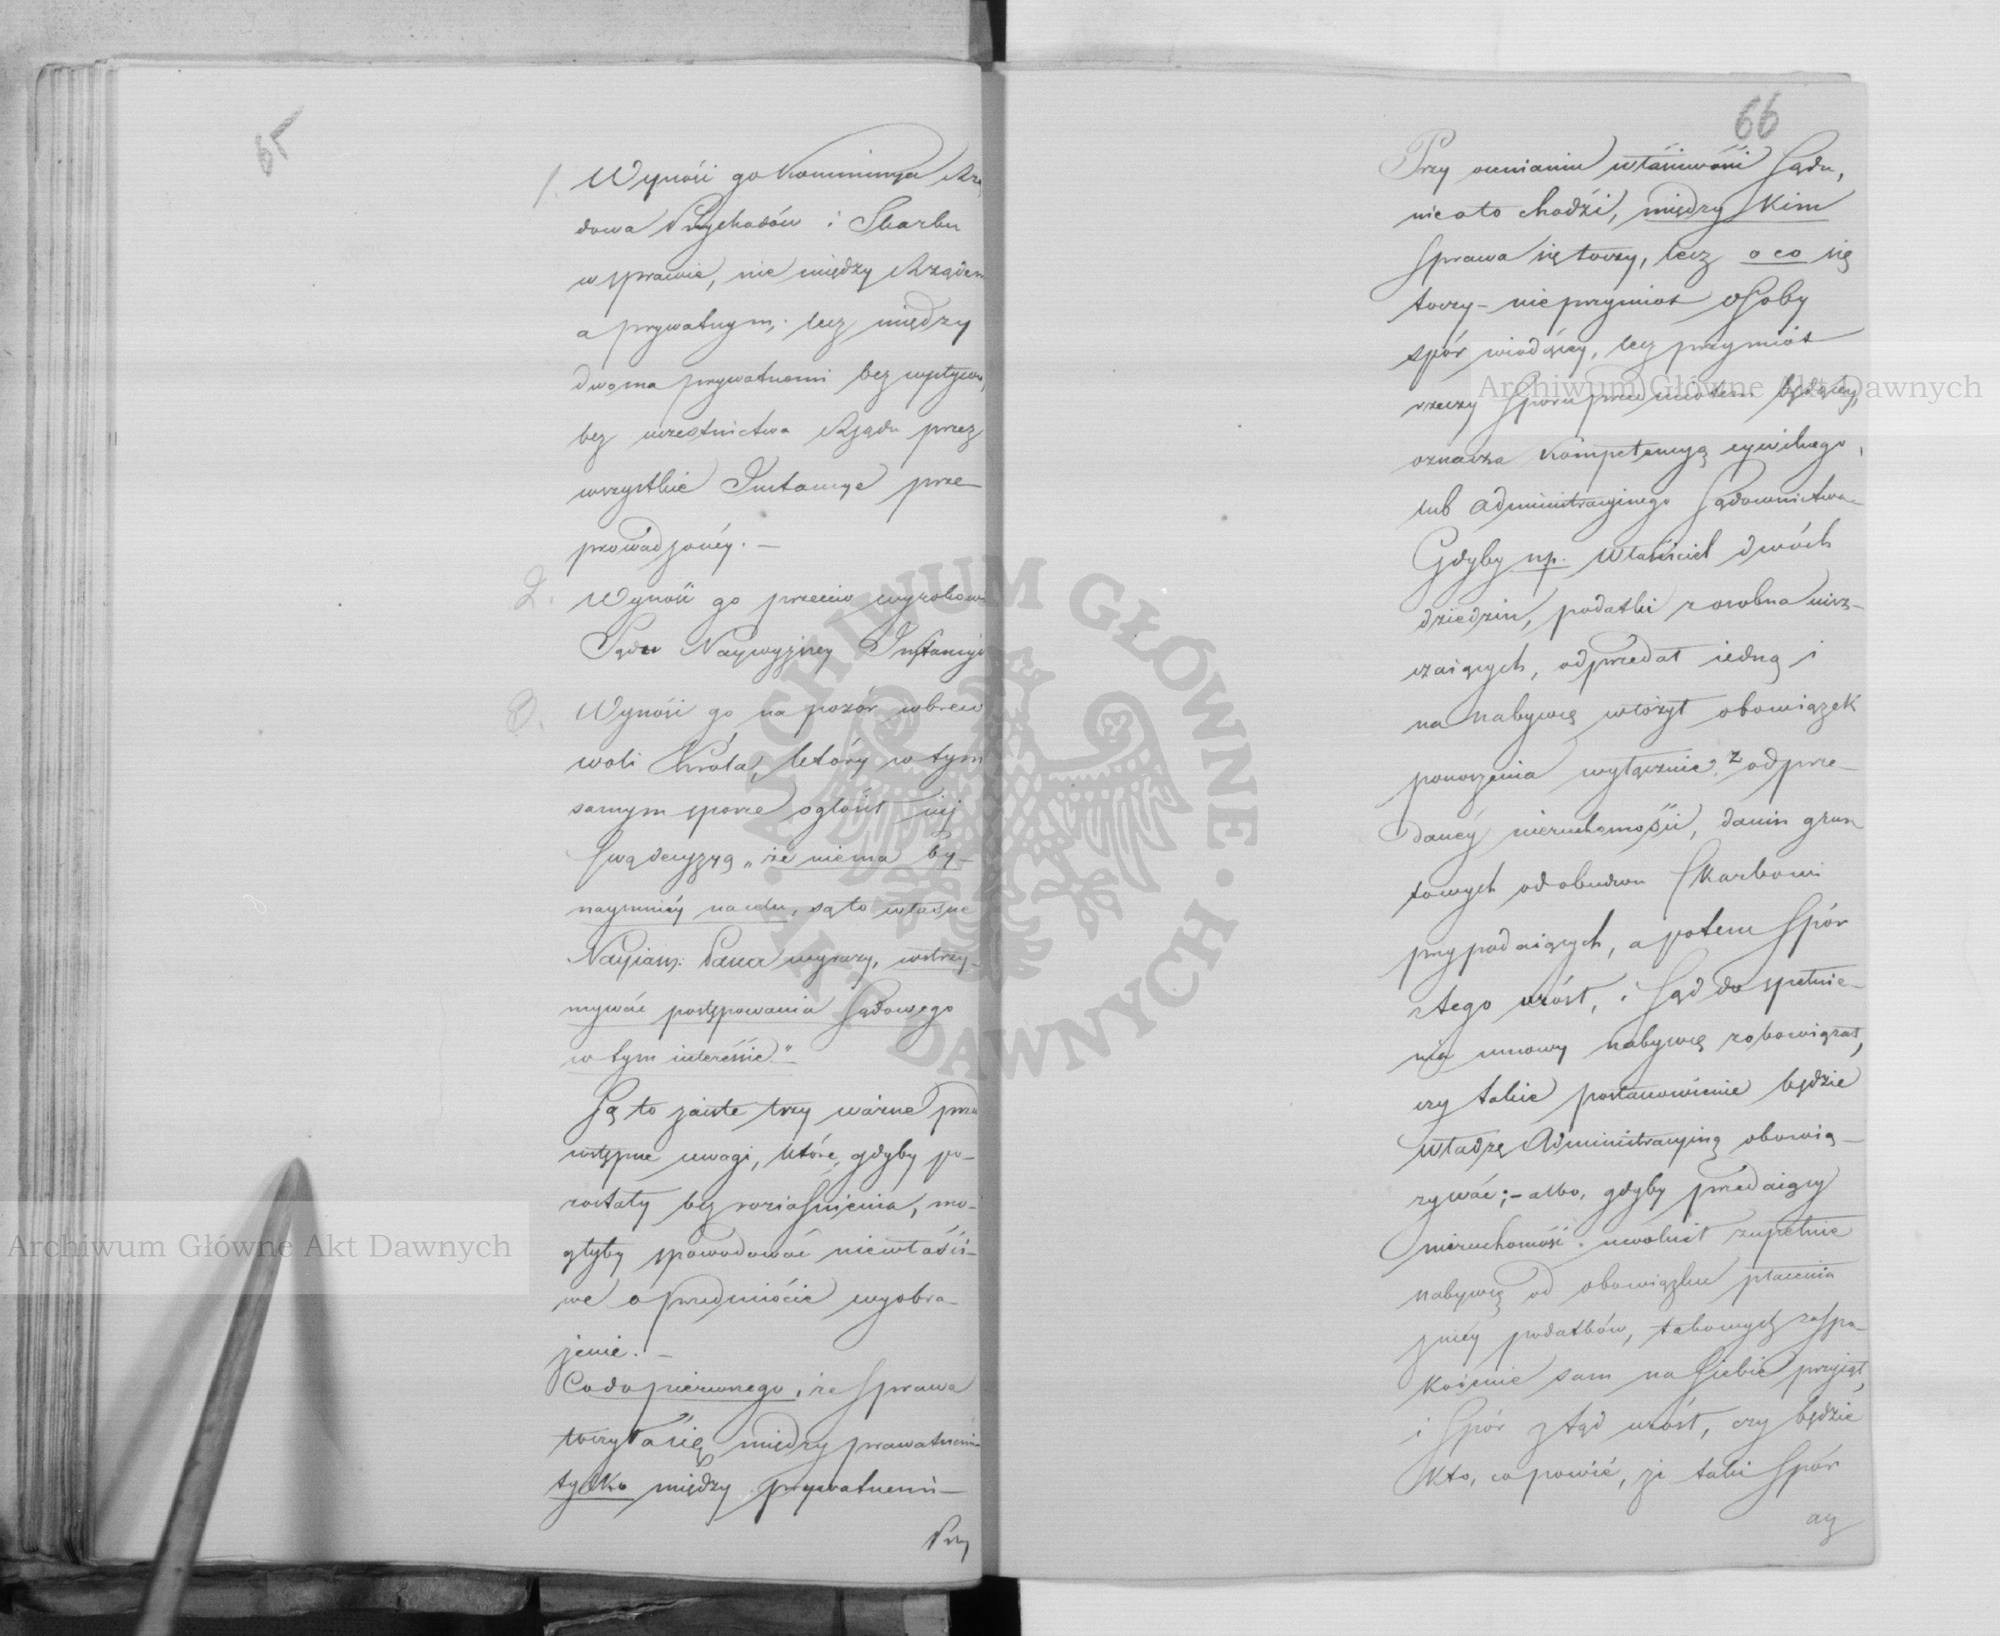 65
1. Wynosi go Kommissya Rzą
dowa Przychodów i Skarbu
w sprawie, nie między Rządem
a prywatnym, lecz między
dwoma prywatnemi bez wpływu,
bez uczestnictwa Rządu przez
wszystkie Instancye prze-
prowadzonéy. —
2. Wynosi go przeciw wyrokowi
Sądu Naywyższey Instancyi
3. Wynosi go na pozór wbrew
woli Króla, który w tym
samym sporze ogłosił iuż
swą decyzyą „że niema by-
naymniéy na celu, są to własne
Nayiaś: Pana wyrazy, wstrzy-
mywać postępowania sądowego
w tym interessie."
Są to zaiste trzy ważne przed
wstępne uwagi, które, gdyby po-
zostały bez roziaśnienia, mo-
głyby spowodować niewłaści-
we o przedmiocie wyobra-
żenie. —
Co do pierwszego, że sprawa
toczyła się między prywatnemi
tylko między prywatnemi —
Przy
66
Przy ocenianiu właściwości Sądu,
nie o to chodzi, między kim
sprawa się toczy, lecz o co się
toczy — nie przymiot osoby
spór wiodącey, lecz przymiot
rzeczy sporu przedmiotem będącey,
oznacza kompetencyą cywilnego,
lub administracyinego sądownictwa —
Gdyby np. właściciel dwóch
dziedzin, podatki z osobna uisz-
czaiących, odprzedał iedną i
na nabywcę włożył obowiązek
ponoszenia wyłącznie z odprze-
danéy nieruchomości, danin grun
towych od obudwu Skarbowi
przypadaiących, a potem spór
z tego urósł, i Sąd do spełnie-
nia umowy nabywcę zobowiązał,
czy takie postanowienie będzie
władzę Administracyiną obowią-
zywać; — albo, gdyby przedaiący
nieruchomość uwolnił zupełnie
nabywcę od obowiązku płacenia
z niéy podatków, takowych zaspo-
kojenie sam na siebie przyiął,
i spór ztąd urósł, czy będzie
kto, co powié, że taki spór
aż
Archiwum Główne Akt Dawnych
Archiwum Główne Akt Dawnych
· ARCHIWUM GŁÓWNE · AKT DAWNYCH